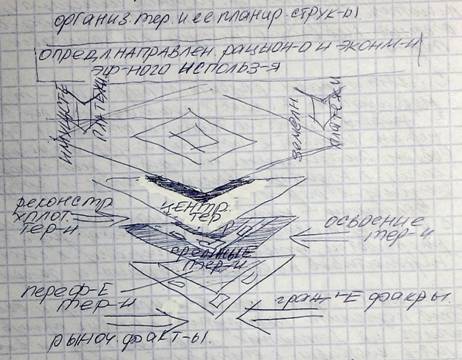 организ. тер. и ее планир. струк-ы
определ. направлен. рацион-о и эконм-и
эф-ного использ-я
имуществ
платежи
земелн
платежи
центр.
тер
реконстр
хплот.
тер-и
освоение
тер-и
срединные
тер-и
переф-е
тер-и
граж-е факры.
рыноч. факт-ы.